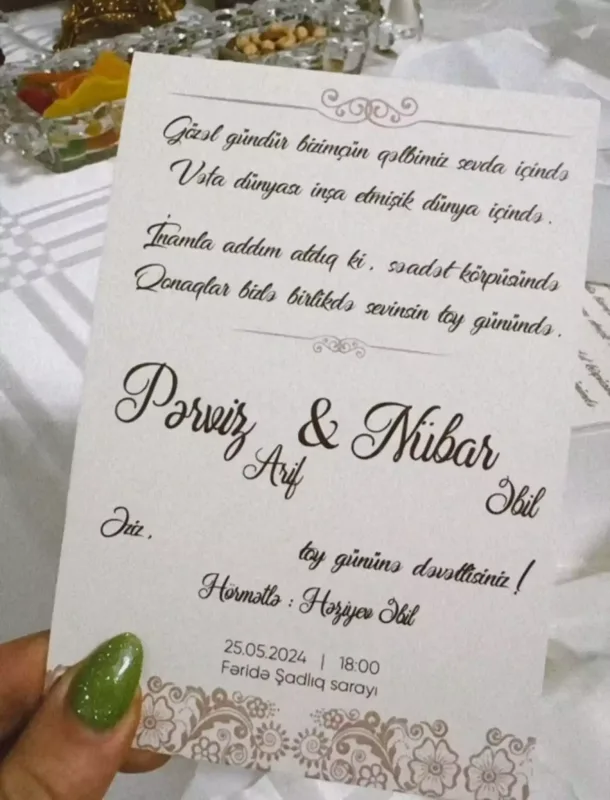 Gözəl gündür bizimçün qəlbimiz sevda içində
Vəfa dünyası inşa etmişik dünya içində.
İnamla addım atdıq ki, səadət körpüsündə
Qonaqlar bizlə birlikdə sevinsin toy günündə.
Pərviz & Nübar
Arif
Əbil
Əziz,
toy gününə dəvətlisiniz!
Hörmətlə : Həziyev Əbil
25.05.2024 | 18:00
Fəridə Şadlıq sarayı